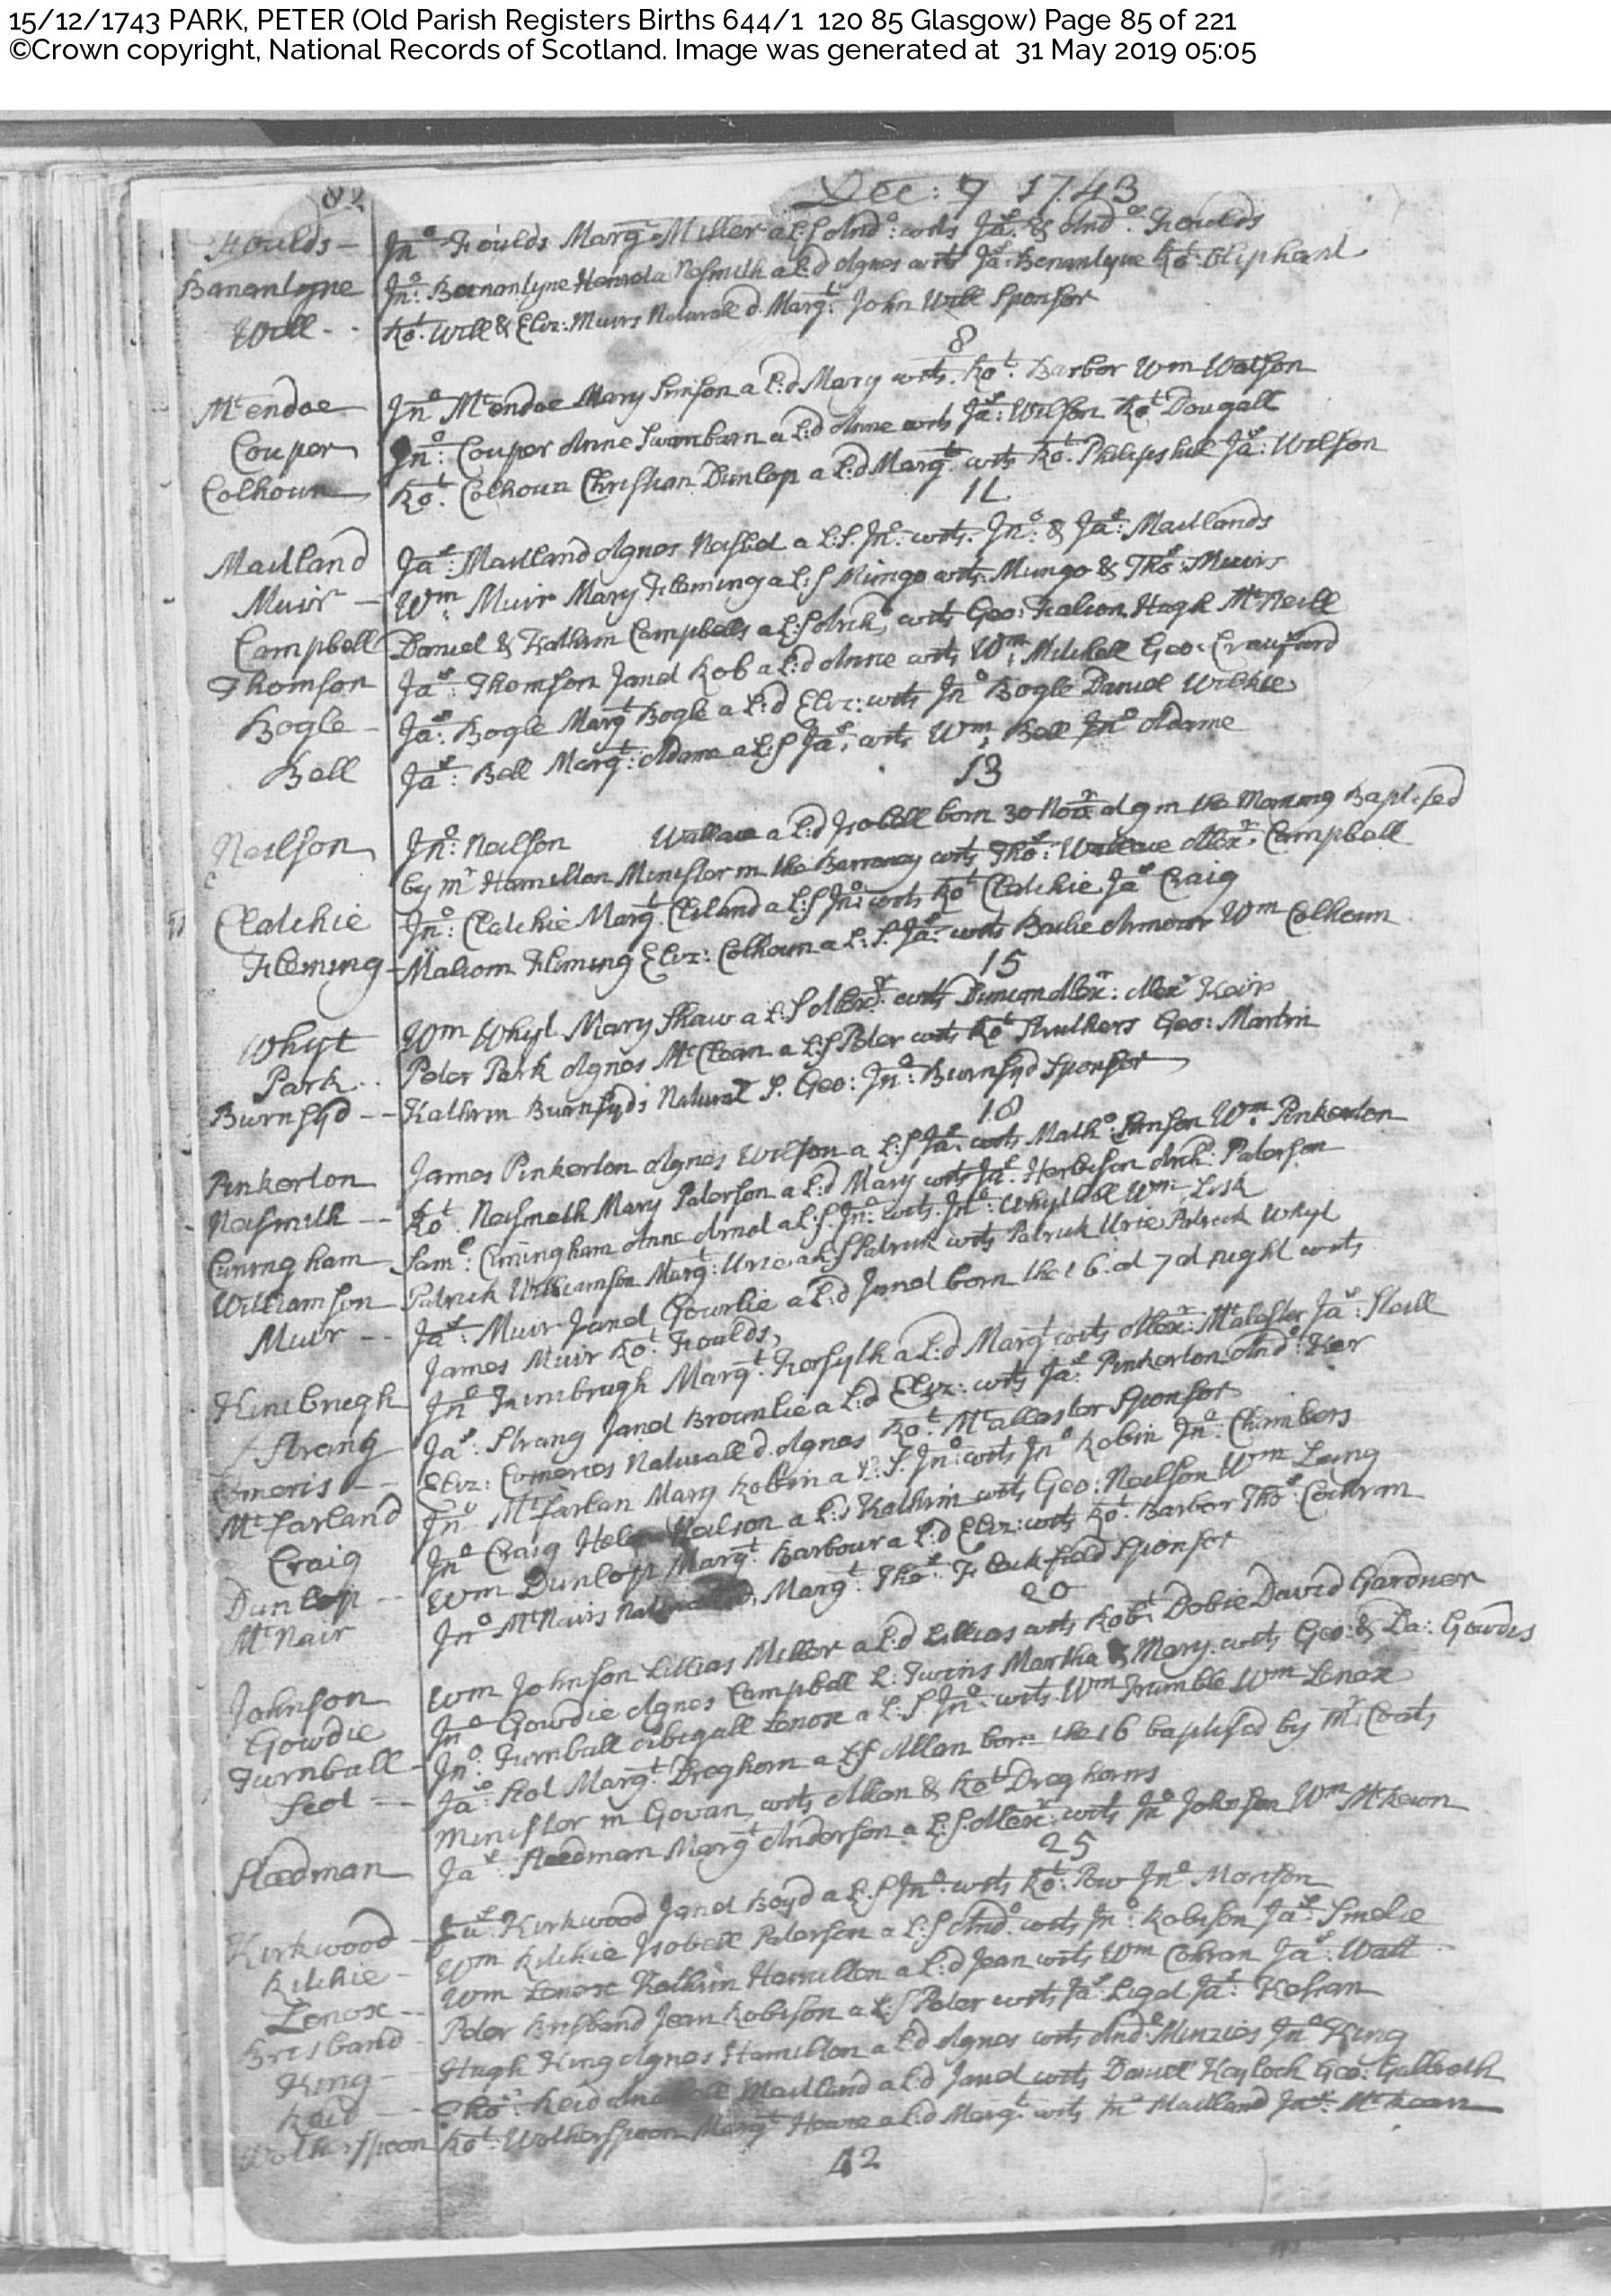 15/12/1743 PARK, PETER (Old Parish Registers Births 644/1 120 85 Glasgow) Page 85 of 221
©Crown copyright, National Records of Scotland. Image was generated at 31 May 2019 05:05
Dec: 7 1743
Foulds Jno Foulds Margt Miller a L: S And: wits Jas & And: Foulds
Bananlyne Jno: Bananlyne Nesmith a L:d Agnes wits Jas: Bananlyne Rot: Oliphant
Will Rot. Will & Eliz: Muirs Naturall d. Margt: John Will Sponsor
8
Mcendoe Jno Mcendoe Mary Simson a L:d Mary wits. Rot: Barbor Wm Watson
Couper Jno: Couper Anne Swanbarn a L:d Anne wits Jas: Wilson Rot Dougall
Colhoun Rot. Colhoun Christian Dunlop a L:d Margt. wits Rot. Philipshill Jas: Wilson
11
Maitland Jas: Maitland Agnes a L:S. Jno: wits. Jno: & Jas: Maitlands
Muir Wm Muir Mary Fleming a L:S Mungo wits Mungo & Thos: Muirs
Campbell Daniel & Kathrin Campbells a L:S Archd wits Geo: Hugh McNeill
Thomson Jas: Thomson Janet Rob a L:d Anne wits Wm: Mitchell Geo: Craufurd
Bogle Jas: Bogle Margt Bogle a L:d Eliz: wits Jno Bogle Daniel Wilkie
Bell Jas: Bell Margt: Adame a L:S Jas: wits Wm: Bell Jno Adame
13
Neilson Jno: Neilson Wallace a L:d Isobell born 30 Novr at 9 in the Morning Baptised
by Mr Hamilton Minister in the Barrony wits Thos: Wallace Alexr: Campbell
Clatchie Jno: Clatchie Margt. Cleland a L:S Jno: wits Rot Clatchie Jas Craig
Fleming Malcom Fleming Eliz: Colhoun a L:S. Jas: wits Bailie Armour Wm Colhoun
15
Whyt Wm Whyt Mary Shaw a L:S Alexr. wits Duncan Alexr: Alexr Keir
Park Peter Park Agnes McClean a L:S Peter wits Rot Struthers Geo: Martin
Burnsyd Kathrin Burnsyds Natural S. Geo: Jno: Burnsyd Sponsor
18
Pinkerton James Pinkerton Agnes Wilson a L:S Jas: wits Matho: Simson Wm: Pinkerton
Nesmith Rot. Nesmeth Mary Paterson a L:d Mary wits Jas. Herbison Arch: Paterson
Cuningham Sam: Cuningham Anne a L:S. Jno: wits. Jno: Whythill Wm: Lisk
Williamson Patrick Williamson Margt: Urie a L:S Patrick wits Patrick Urie Patrick Whyt
Muir Jas: Muir Janet Gourlie a L:d Janet born the 16. at 7 at night wits
James Muir Rot: Foulds
Kimbrugh Jno Kimbrugh Margt: Forsyth a L:d Margt wits Alexr: McAlaster Jas: Steill
Strang Jas: Strang Janet Brounlie a L:d Eliz: wits Jas Pinkerton And: Ker
Comeris Eliz: Comeries Naturall d. Agnes Rot: McAllaster Sponsor
McFarland Jno McFarlan Mary Robbin a L:S. Jno: wits Jno Robin Jno: Chambers
Craig Jno Craig Helen Neilson a L:d Kathrin wits Geo: Neilson Wm Laing
Dunlop Wm Dunlop Margt: Barbour a L:d Eliz: wits Rot: Barbor Thos: Cochran
McNair Jno McNairs Margt: Thos: Sponsor
20
Johnson Wm Johnson Lillias Miller a L:d Lillias wits Robt Dobie David Gardner
Gowdie Jno Gowdie Agnes Campbell L: Twins Martha & Mary wits Geo: & Da: Gowdies
Turnball Jno: Turnball Abigall Lenox a L:S Jno: wits Wm Trumble Wm Lenox
Scot Jas: Scot Margt: Dreghorn a L:S Allan born the 16 baptised by Mr Coats
Minister in Govan wits Allan & Rot Dreghorns
Steedman Jas: Steedman Margt Anderson a L:S. Alexr: wits Jno Johnson Wm McKewn
25
Kirkwood Jas: Kirkwood Janet Boyd a L:S Jno: wits Rot: Pow Jno Morison
Ritchie Wm Ritchie Isobell Paterson a L:S And: wits Jno: Robison Jas: Smelie
Lenox Wm Lenox Kathrin Hamilton a L:d Jean wits Wm Cohran Jas: Watt
Brisband Peter Brisband Jean Robison a L:S Peter wits Jas Ligat Jas:
King Hugh King Agnes Hamilton a L:d Agnes wits And: Minzies Jno King
Reid Thos: Reid Maitland a L:d Janet wits Daniel Geo: Galbreth
Wotherspoon Rot: Wotherspoon Margt a L:d Margt. wits Jno Maitland Jas:
42